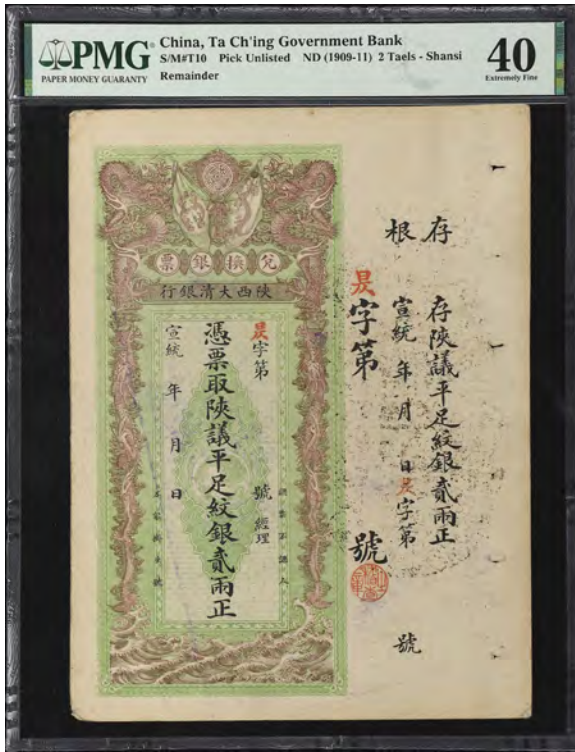 PMG
PAPER MONEY GUARANTY
China, Ta Ch'ing Government Bank
S/M#T10 Pick Unlisted ND (1909-11) 2 Taels - Shansi
Remainder
40
Extremely Fine
票銀換兌
行銀清大西陝
字第 號 經理
憑票取陝議平足紋銀貳兩正
宣統 年 月 日
認票不認人
存根
存陝議平足紋銀貳兩正
宣統 年 月 日 字第 號
字第 號